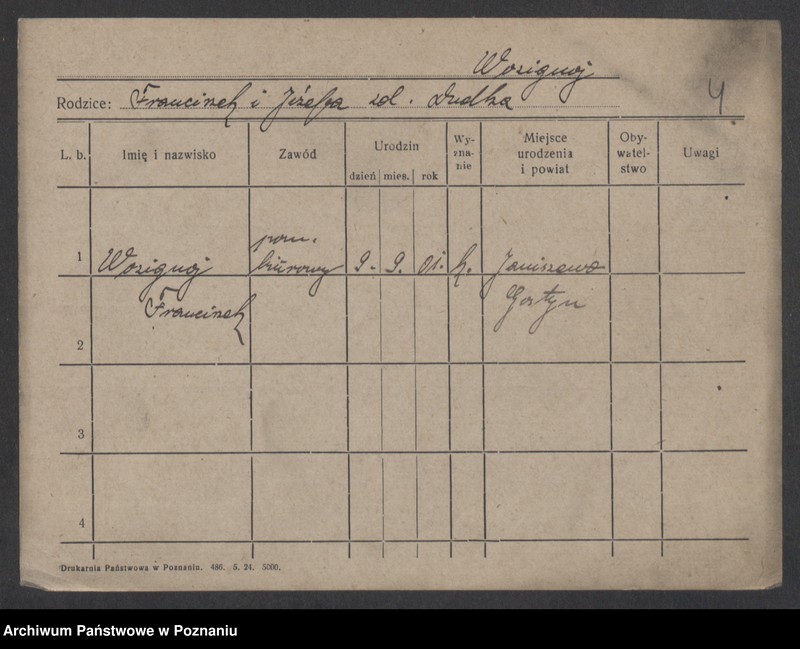 Wozignoj
Rodzice: Franciszek i Józefa zd. Dudka
4
L. b. Imię i nazwisko Zawód Urodzin dzień mies. rok Wy-zna-nie Miejsce urodzenia i powiat Oby-watel-stwo Uwagi
pom.
1 Wozignoj biurowy 9. 9. 01. k. Janiszewo
Franciszek Gostyn
2
3
4
Drukarnia Państwowa w Poznaniu. 486. 5. 24. 5000.
Archiwum Państwowe w Poznaniu